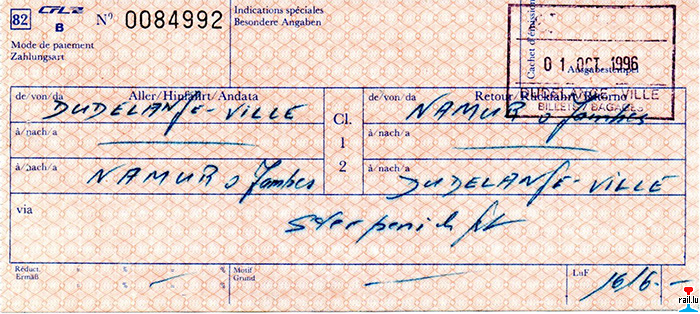 82 CFL B N° 0084992
Mode de paiement
Zahlungsart
Indications spéciales
Besondere Angaben
Cachet d'émission
01 OCT 1996
Ausgabestempel
DUDELANGE-VILLE
BILLETS / BAGAGES
de/von/da Aller/Hinfahrt/Andata
DUDELANGE-VILLE
à/nach/a
à/nach/a
NAMUR Jambes
Cl.
1
2
de/von/da Retour/Rückfahrt/Ritorno
NAMUR Jambes
à/nach/a
à/nach/a
DUDELANGE-VILLE
via
Sterpenich
Réduct.
Ermäß
Motif
Grund
LuF 1616.-
rail.lu